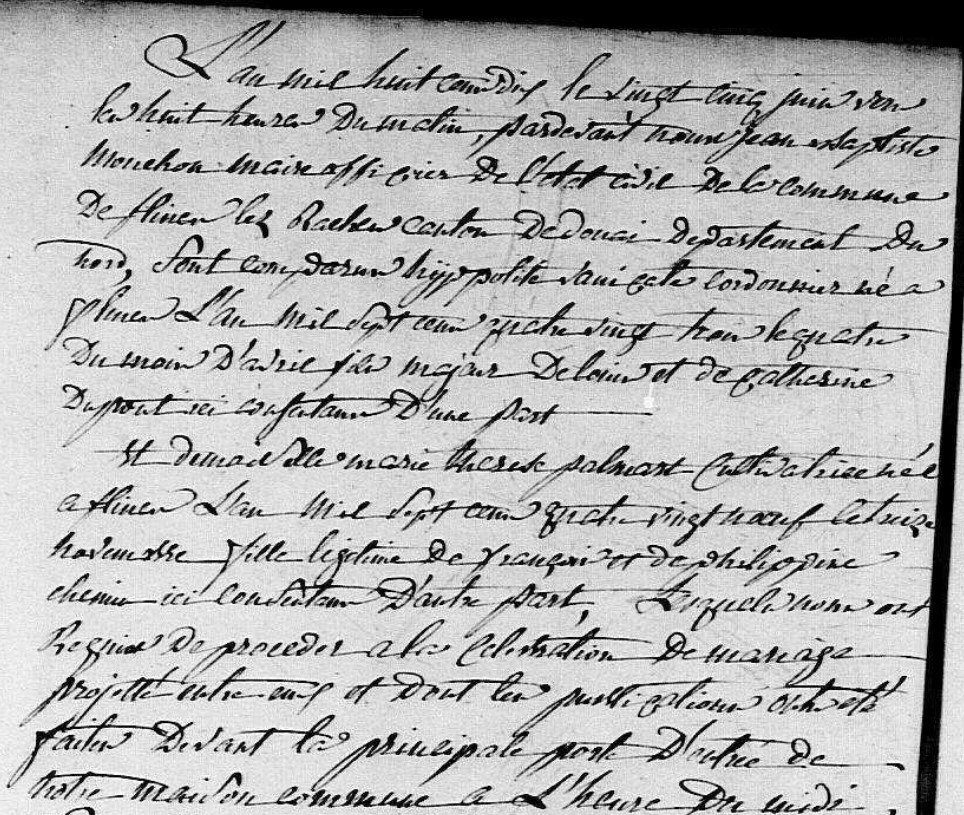 L'an mil huit cent dix le vingt cinq juin vers
les huit heures du matin, pardevant nous jean Baptiste
Mouchon maire officier De l'etat civil De la commune
De flines lez Raches canton De douai département du
nord, sont comparus hyppolite cordonnier né a
flines L'an mil sept cent quatre vingt trois le quatre
Du mois D'avril fils majeur De louis et de catherine
Dupont ici consentans D'une part
Et demoiselle marie therese palmart Cultivatrice née
a flines L'an mil sept cent quatre vingt noeuf le treize
novembre fille legitime de françois et de philippine
chemin ici consentans D'autre part, Lesquels nous ont
Requis De proceder a la Celebration De mariage
projetté entre eux et dont les publications ont été
faites Devant la principale porte D'entrée de
notre maison commune a L'heure Du midi